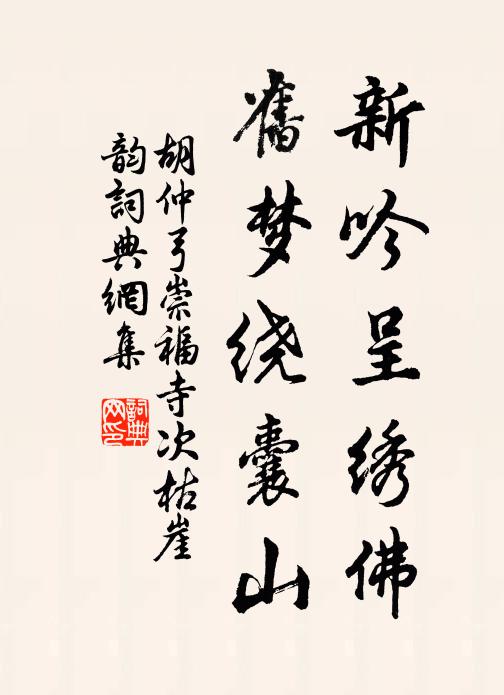 新吟呈绣佛
舊梦绕囊山
胡仲弓崇福寺次枯崖
韵詞典網集
詞典
网印